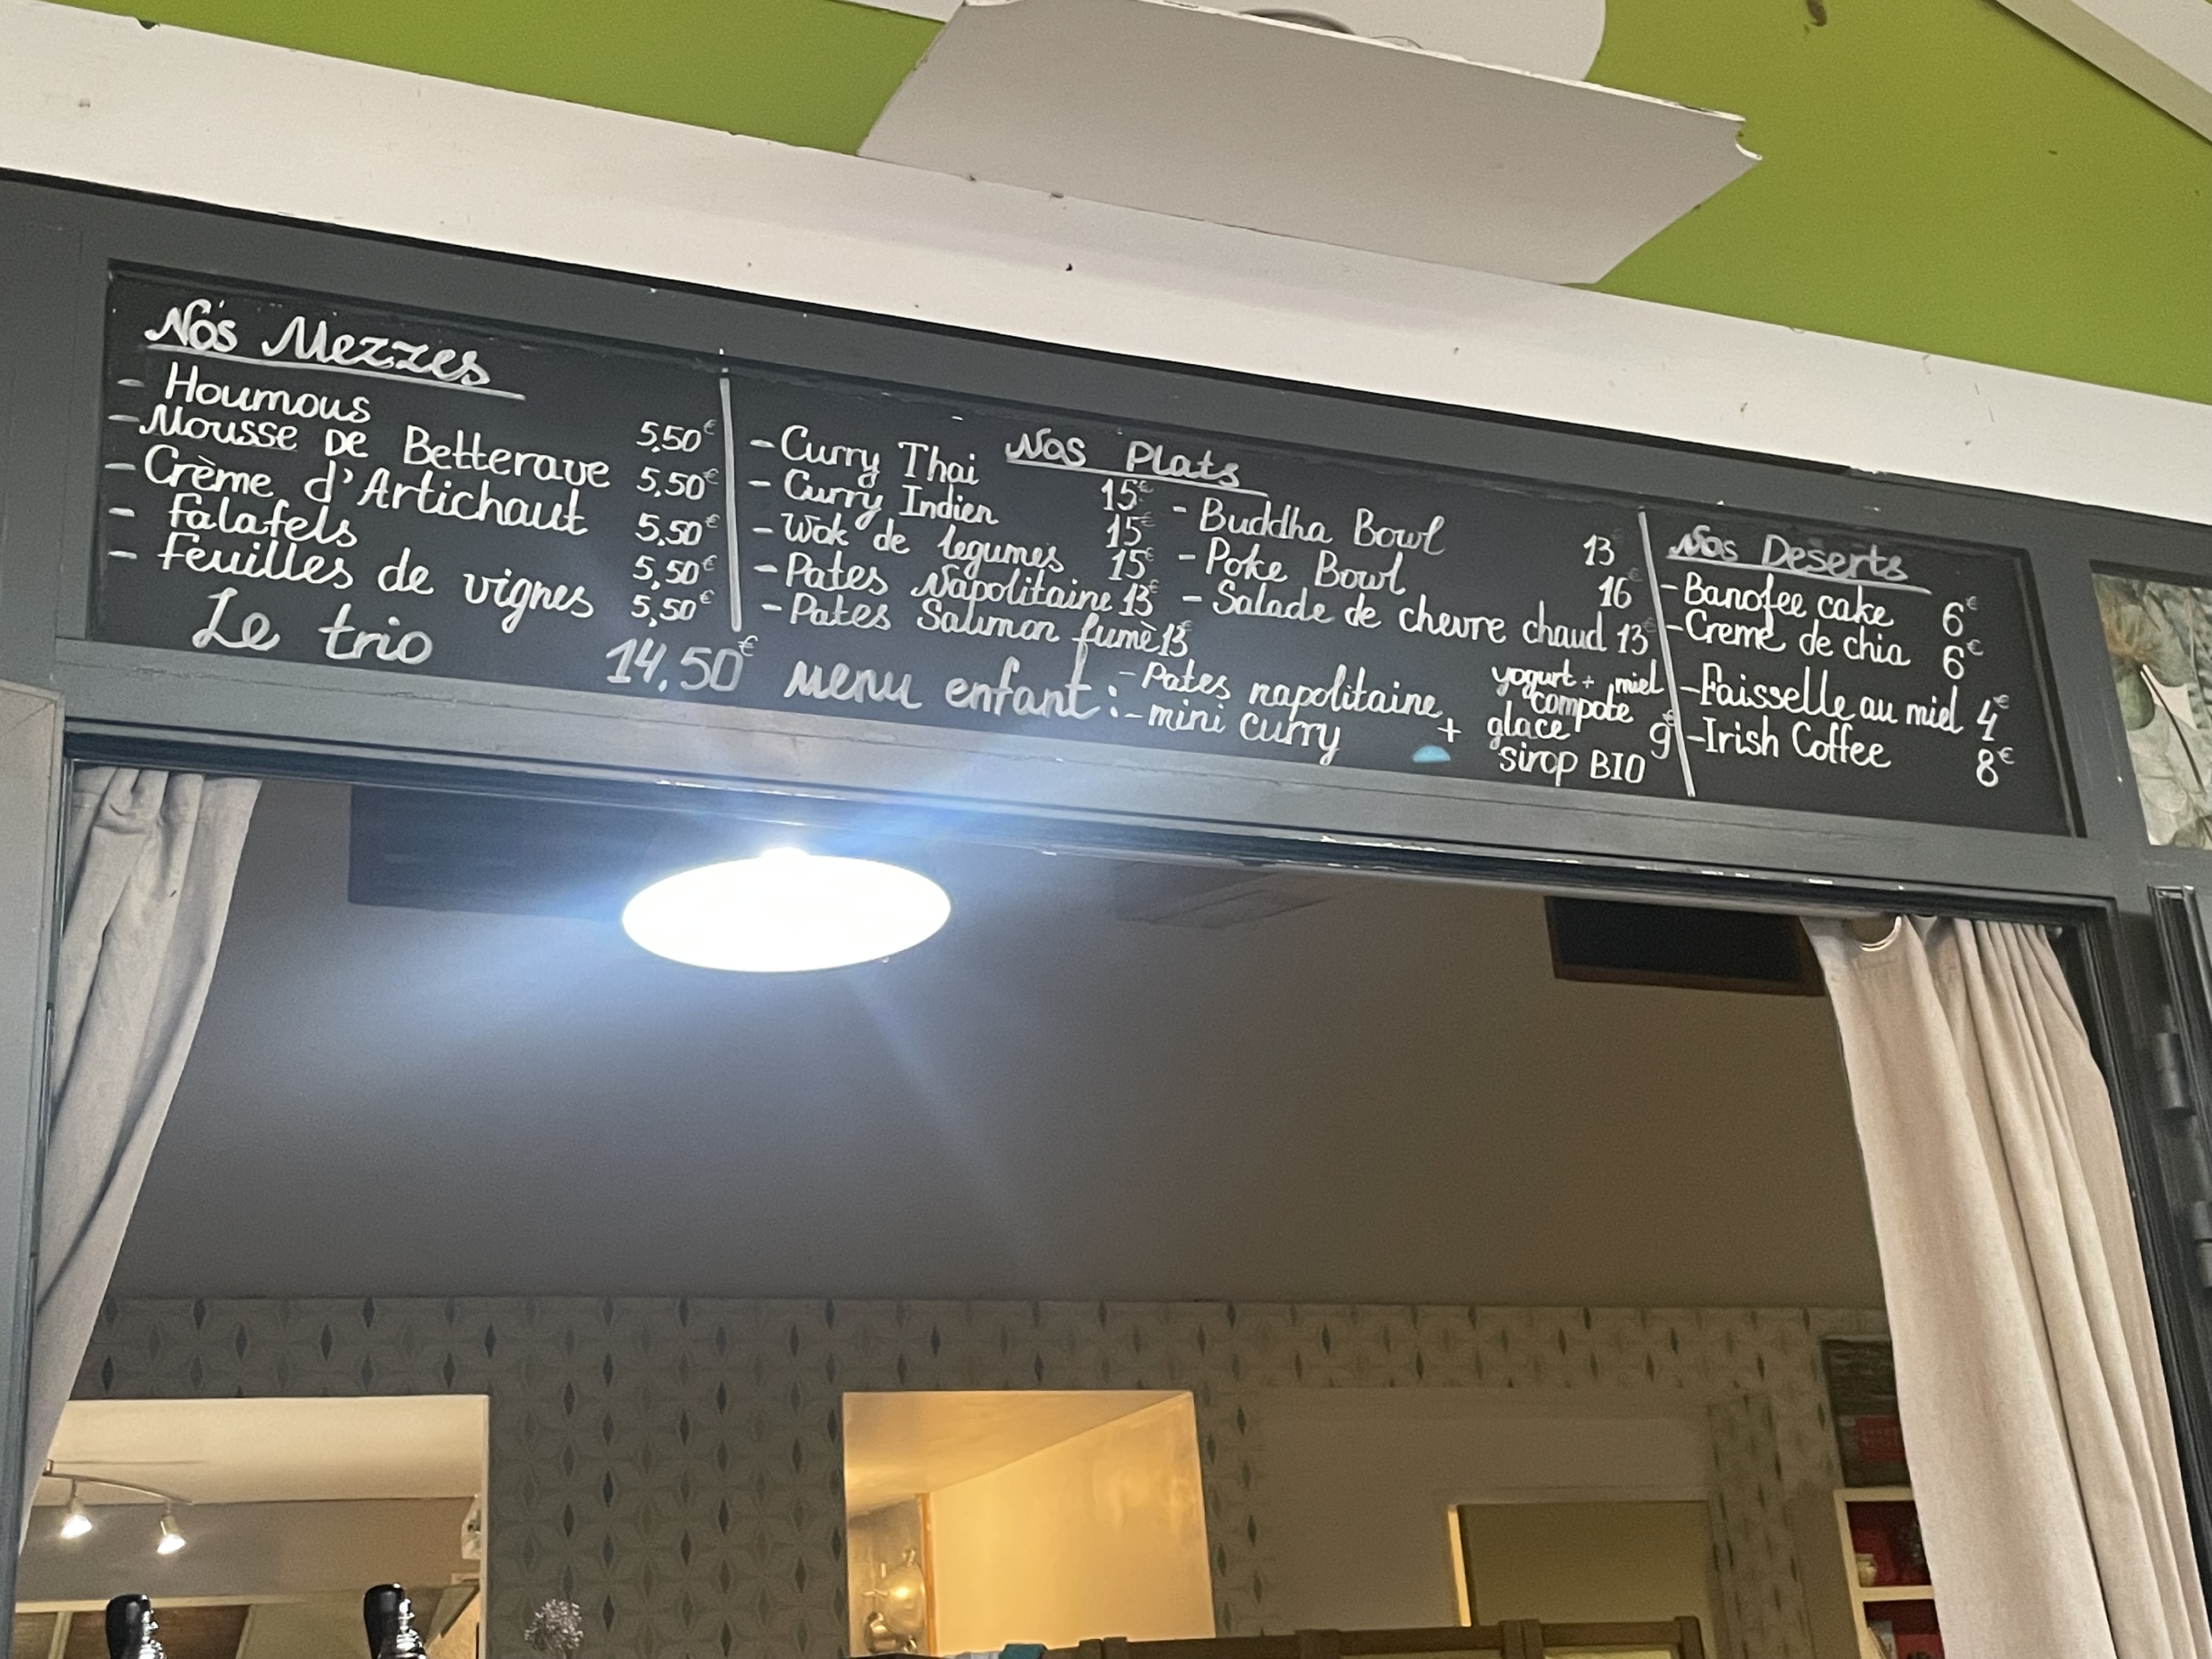 Nos Mezzes
- Houmous 5,50€
- Mousse De Betterave 5.50€
- Crème d'Artichaut 5,50€
- falafels 5,50€
- feuilles de vignes 5,50€
Le trio 14,50€
Nos Plats
- Curry Thai 15€
- Curry Indien 15€
- Wok de legumes 15€
- Pates Napolitaine 13€
- Pates Saumon fumè 13€
- Buddha Bowl 13
- Poke Bowl 16€
- Salade de chevre chaud 13€
menu enfant :
- Pates napolitaine
- mini curry
+
yogurt + miel
compote
glace 9€
sirop BIO
Nos Deserts
- Banofee cake 6€
- Creme de chia 6€
- Faisselle au miel 4€
- Irish Coffee 8€